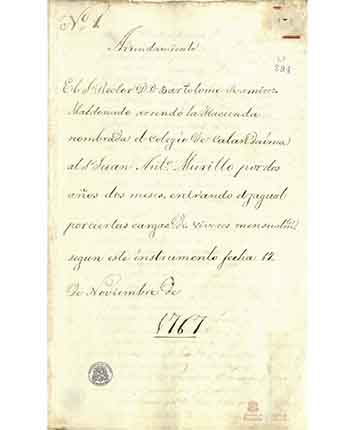 Nº 1.
Arrendamiento
El Sr Rector D. D. Bartolome Ramires
Maldonado arrendó la Hacienda
nombrada el colegio de Calandaima
al Sr Juan Antº Murillo por dos
años dos meses, entrando el
por ciertas cargas de viveres mensuales
segun este instrumento fecha 12
de Noviembre de
1767